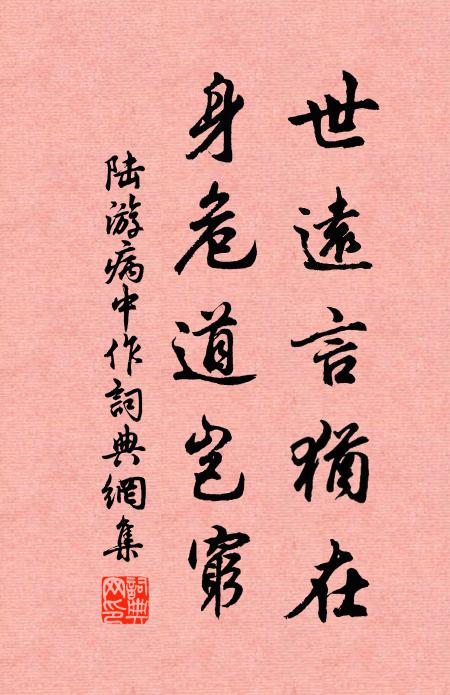 世遠言猶在
身危道豈窮
陆游病中作詞典網集
詞典网印